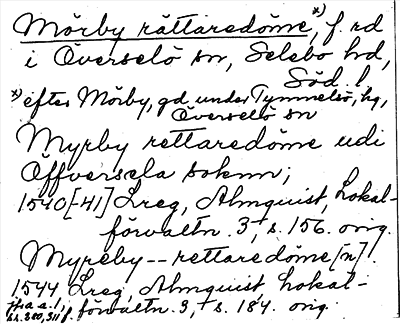 Mörby rättaredöme,*) f. rd
i Överselö sn, Selebo hd,
Söd. l.
*) efter Mörby, gd under Tynnelsö, hg,
Överselö sn
Myrby rettaredöme udi
Öffversela soknn;
1540[-41] Lreg, Almquist, Lokal-
förvaltn. 3, s. 156. orig.
Myreby -- rettaredöme[n]
1544 Lreg, Almquist, Lokal-
jfr a. a. 1, förvaltn. 3, s. 184. orig.
s. 310, 311 f.